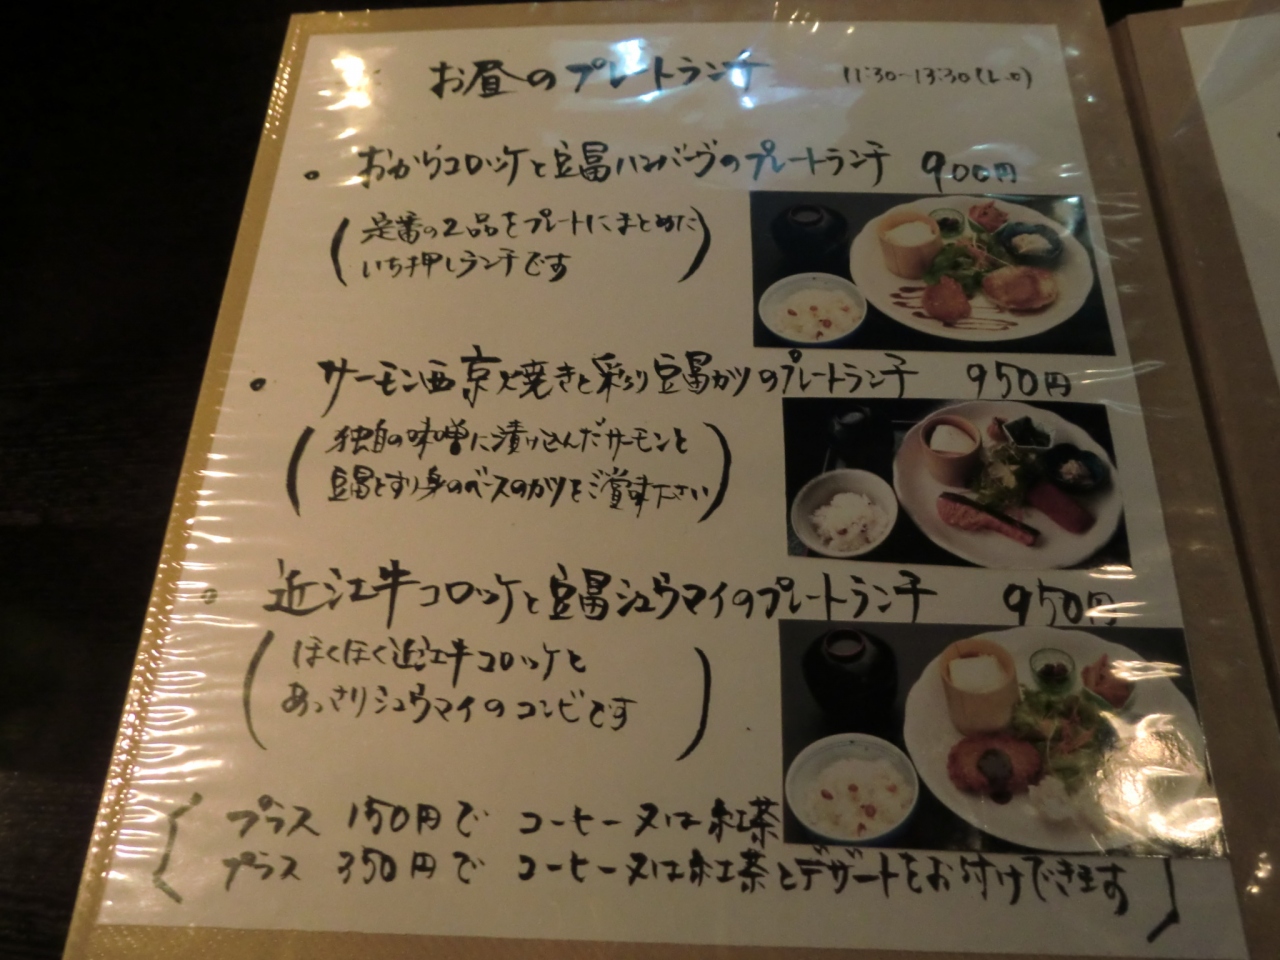 お昼のプレートランチ 11:30~13:30(L.O)
• おからコロッケと豆冨ハンバーグのプレートランチ 900円
(定番の2品をプレートにまとめた
いち押しランチです)
• サーモン西京焼きと彩り豆冨カツのプレートランチ 950円
(独自の味噌に漬け込んだサーモンと
豆冨とすり身のベースのカツをご賞味下さい)
• 近江牛コロッケと豆冨シュウマイのプレートランチ 950円
(ほくほく近江牛コロッケと
あっさりシュウマイのコンビです)
[プラス 150円で コーヒー又は紅茶
プラス 350円で コーヒー又は紅茶とデザートをお付けできます]